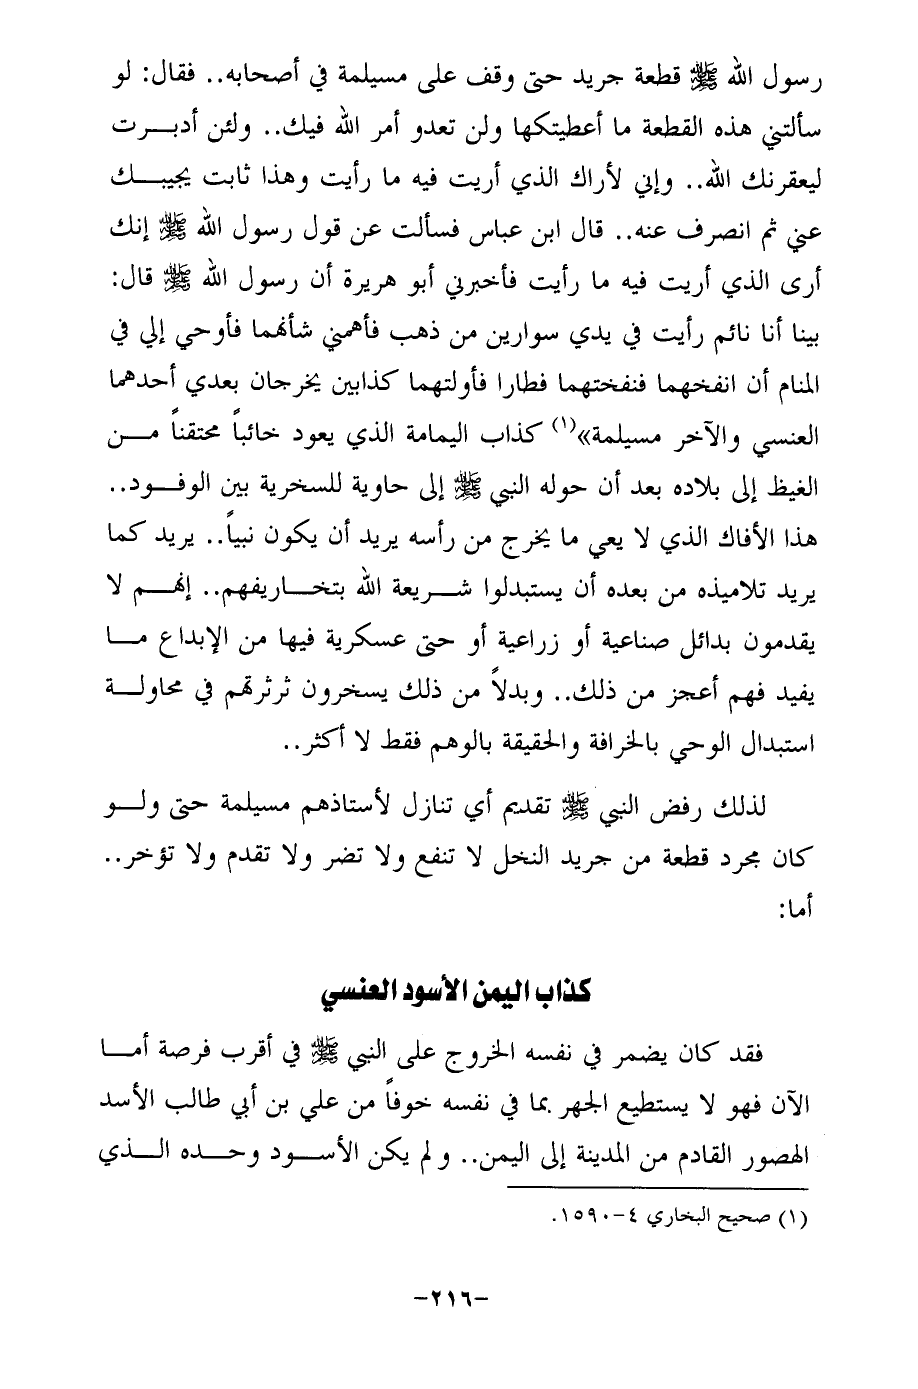 رسول الله ﷺ قطعة جريد حتى وقف على مسيلمة في أصحابه.. فقال: لو
سألتني هذه القطعة ما أعطيتكها ولن تعدو أمر الله فيك.. ولئن أدبرت
ليعقرنك الله.. وإني لأراك الذي أريت فيه ما رأيت وهذا ثابت يجيبك
عني ثم انصرف عنه.. قال ابن عباس فسألت عن قول رسول الله ﷺ إنك
أرى الذي أريت فيه ما رأيت فأخبرني أبو هريرة أن رسول الله ﷺ قال:
بينا أنا نائم رأيت في يدي سوارين من ذهب فأهمني شأنهما فأوحي إلي في
المنام أن انفخهما فنفختهما فطارا فأولتهما كذابين يخرجان بعدي أحدهما
العنسي والآخر مسيلمة»(١) كذاب اليمامة الذي يعود خائباً محتقناً من
الغيظ إلى بلاده بعد أن حوله النبي ﷺ إلى حاوية للسخرية بين الوفود..
هذا الأفاك الذي لا يعي ما يخرج من رأسه يريد أن يكون نبياً.. يريد كما
يريد تلاميذه من بعده أن يستبدلوا شريعة الله بتخاريفهم.. إنهم لا
يقدمون بدائل صناعية أو زراعية أو حتى عسكرية فيها من الإبداع ما
يفيد فهم أعجز من ذلك.. وبدلاً من ذلك يسخرون ثرثرتهم في محاولة
استبدال الوحي بالخرافة والحقيقة بالوهم فقط لا أكثر..
لذلك رفض النبي ﷺ تقديم أي تنازل لأستاذهم مسيلمة حتى ولو
كان مجرد قطعة من جريد النخل لا تنفع ولا تضر ولا تقدم ولا تؤخر..
أما:
كذاب اليمن الأسود العنسي
فقد كان يضمر في نفسه الخروج على النبي ﷺ في أقرب فرصة أما
الآن فهو لا يستطيع الجهر بما في نفسه خوفاً من علي بن أبي طالب الأسد
الهصور القادم من المدينة إلى اليمن.. ولم يكن الأسود وحده الذي
(١) صحيح البخاري ٤-١٥٩٠.
-٢١٦-